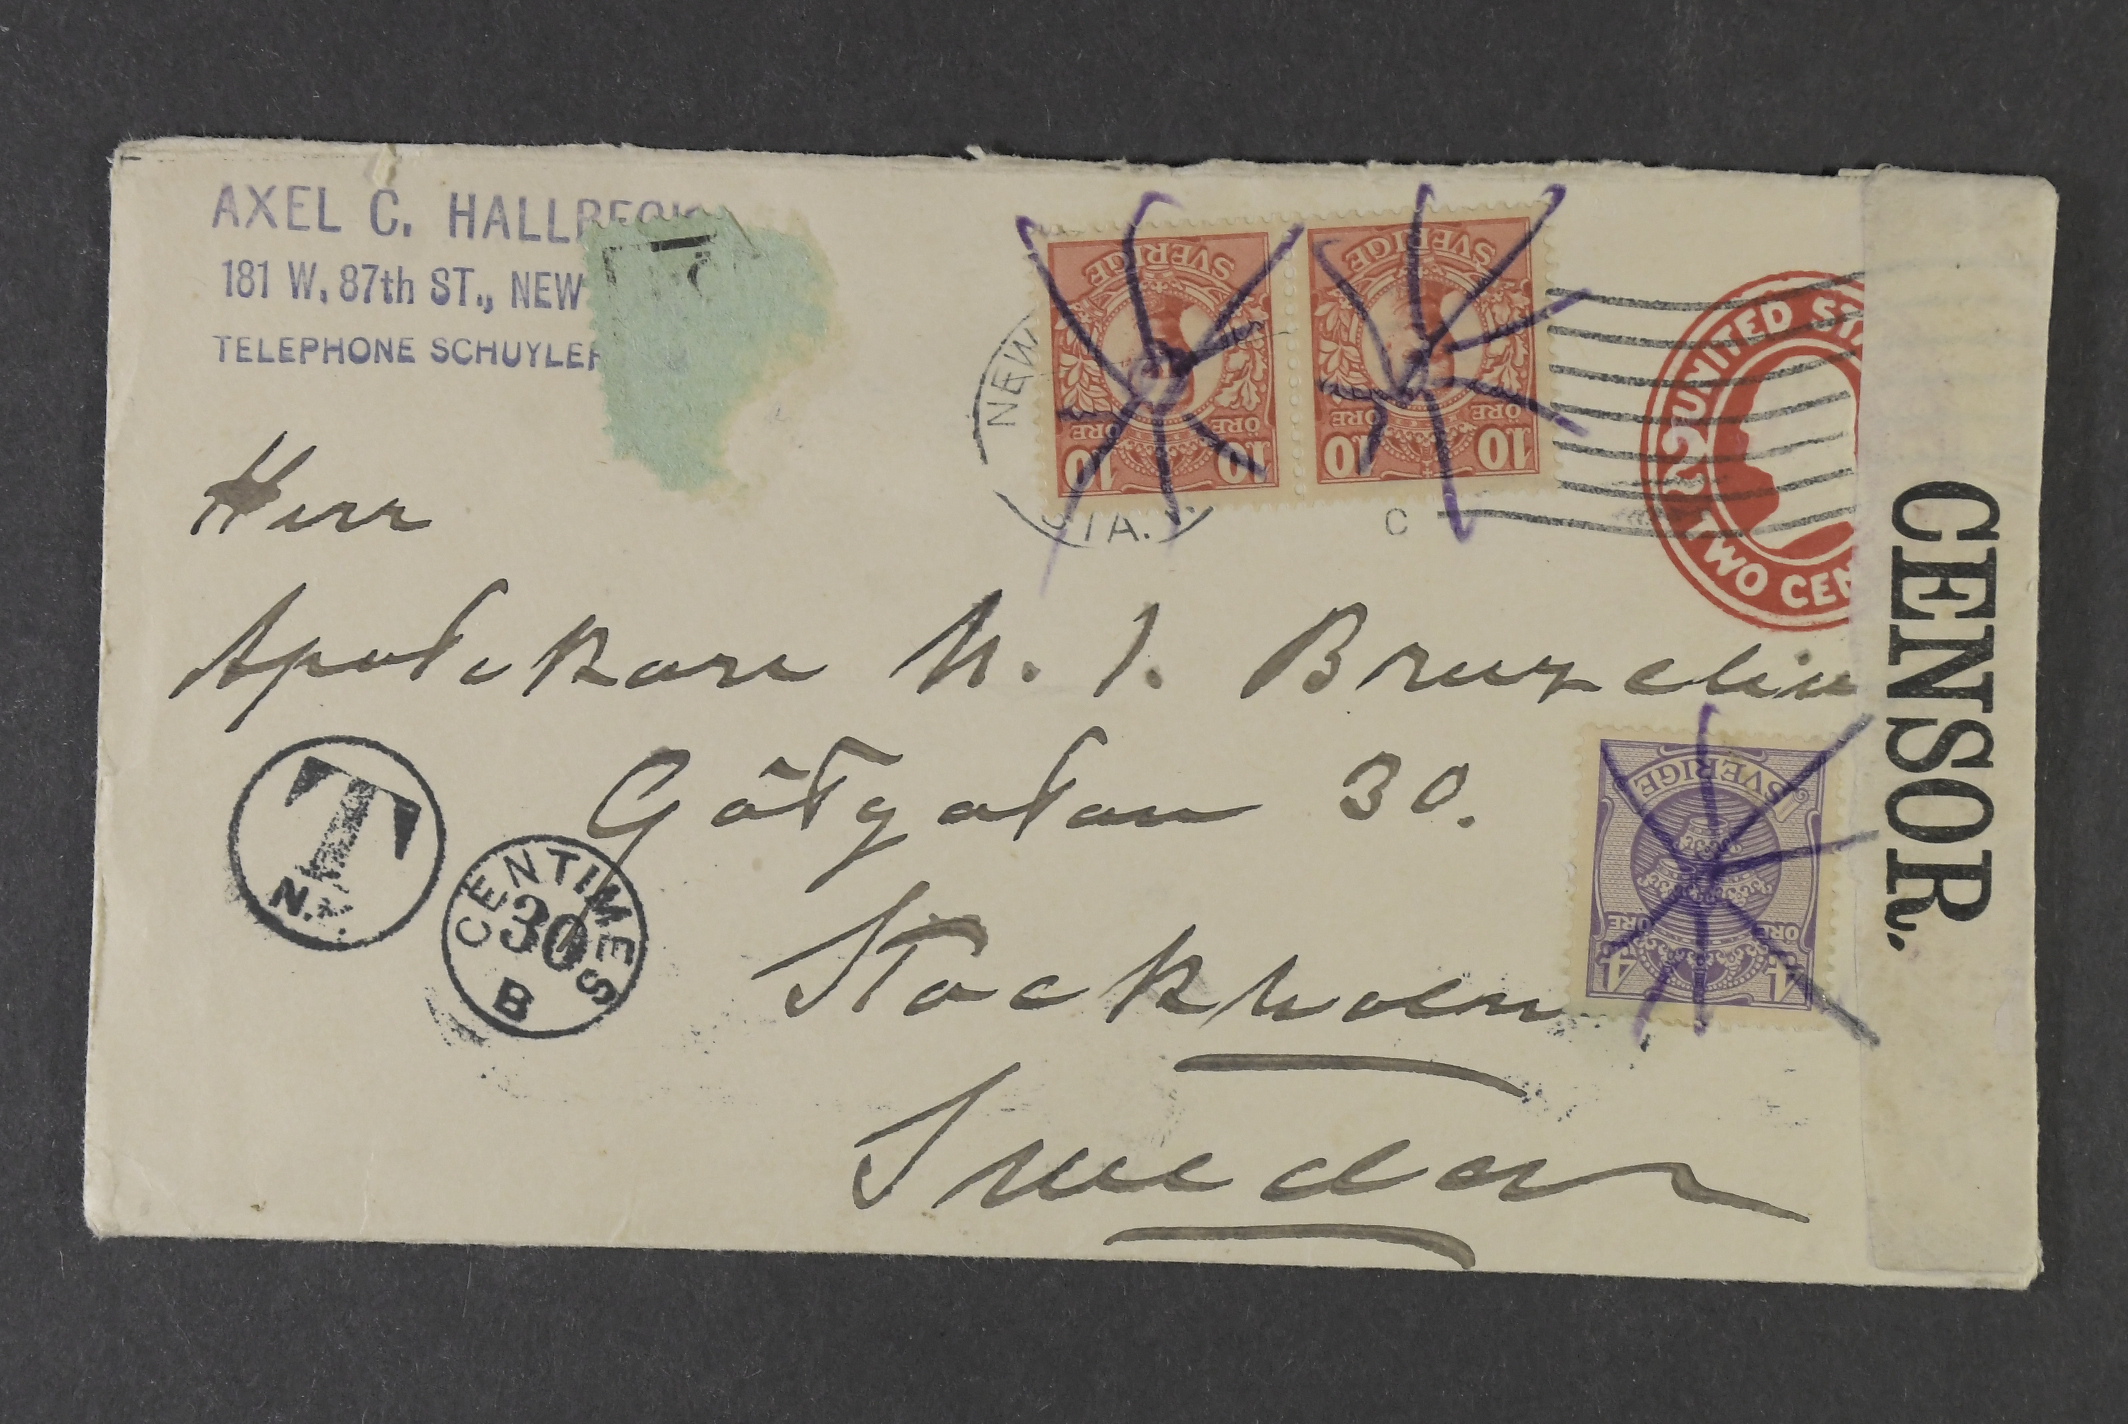 AXEL C. HALLBECK
181 W. 87th ST., NEW
TELEPHONE SCHUYLER
NEW
STA.
C
SVERIGE
ÖRE ÖRE
10 10
SVERIGE
ÖRE ÖRE
10 10
UNITED STA
2
TWO CEN
CENSOR.
Herr
Apotekare N. J. Bruzeliu
Götgatan 30.
Stockholm
Sweden
SVERIGE
ÖRE ÖRE
4 4
T
N.Y.
CENTIMES
30
B